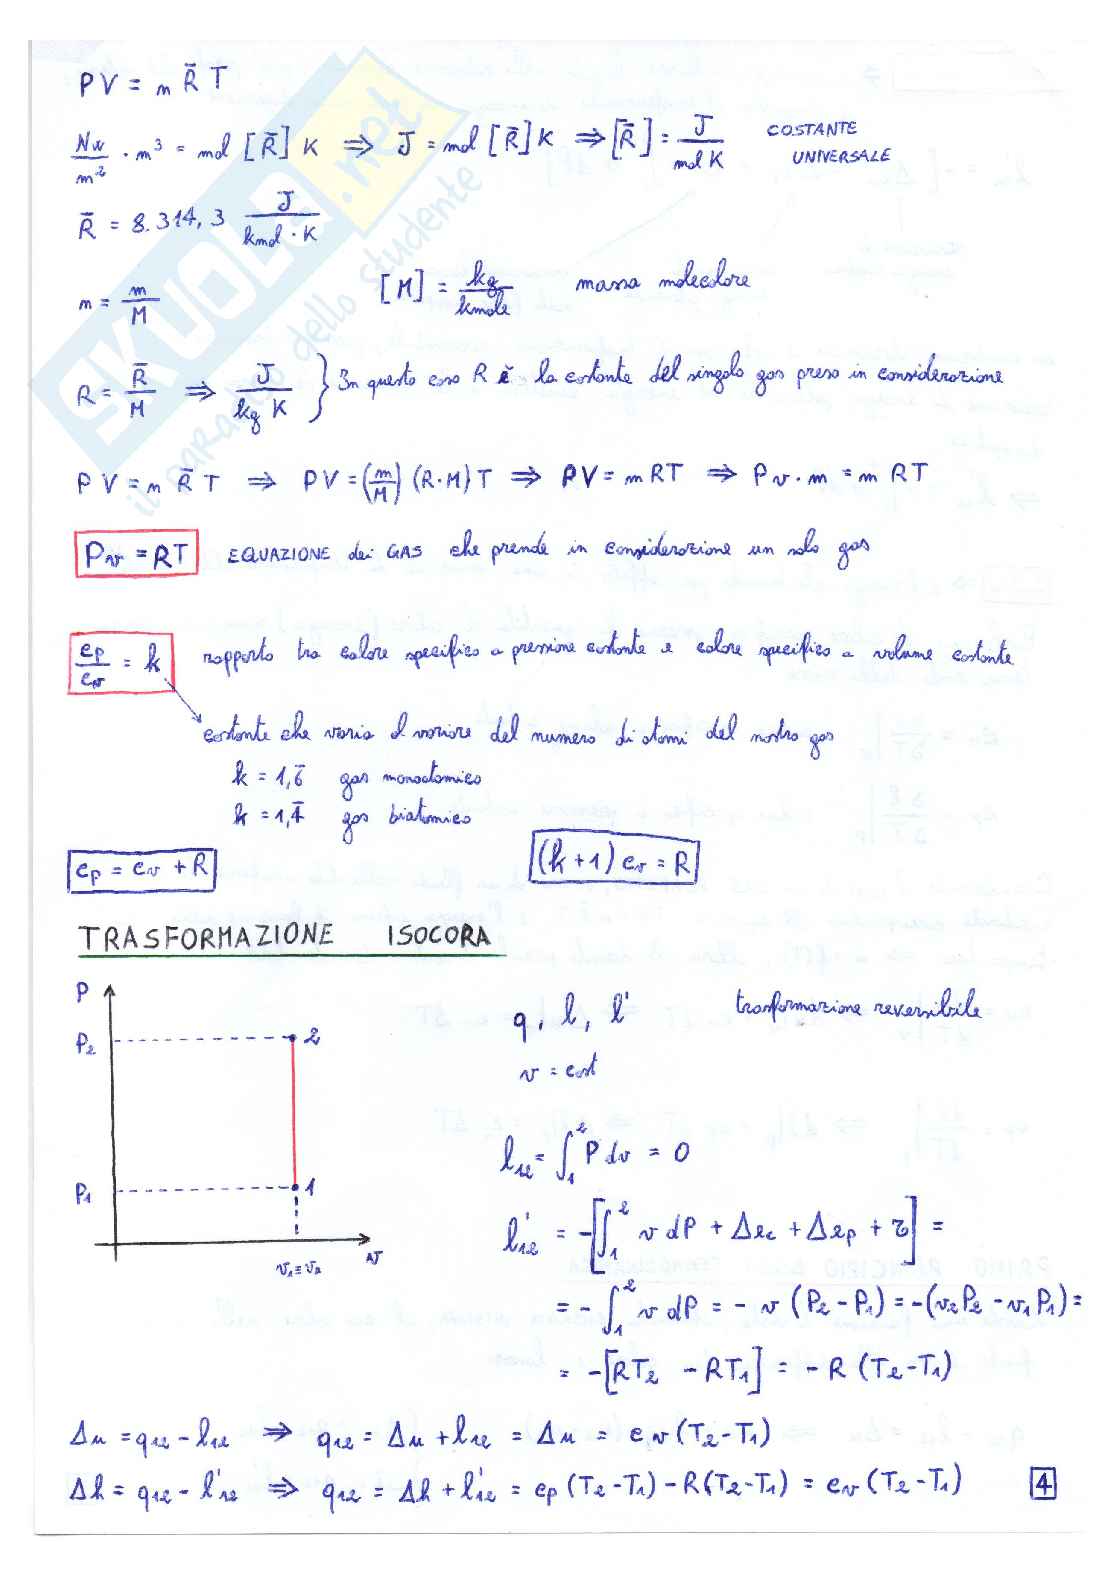 PV = n R̄ T
Nw/m² · m³ = mol [R̄] K ⇒ J = mol [R̄] K ⇒ [R̄] = J/mol K COSTANTE UNIVERSALE
R̄ = 8.314,3 J/kmol · K
n = m/M [M] = kg/kmole massa molecolare
R = R̄/M ⇒ J/kg K } In questo caso R è la costante del singolo gas preso in considerazione
PV = n R̄ T ⇒ PV = (m/M) (R·M) T ⇒ PV = m RT ⇒ Pv · m = m RT
Pv = RT EQUAZIONE dei GAS che prende in considerazione un solo gas
cp/cv = k rapporto tra calore specifico a pressione costante e calore specifico a volume costante
costante che varia al variare del numero di atomi del nostro gas
k = 1,6̄ gas monoatomico
k = 1,4̄ gas biatomico
cp = cv + R (k + 1) cv = R
TRASFORMAZIONE ISOCORA
P
P2
2
P1
1
v1 ≡ v2
v
q, l, l' trasformazione reversibile
v = cost
l12 = ∫₁² P dv = 0
l'12 = -[∫₁² v dP + Δec + Δep + τ] =
= -∫₁² v dP = - v (P2 - P1) = -(v2P2 - v1P1) =
= -[RT2 - RT1] = - R (T2 - T1)
Δu = q12 - l12 ⇒ q12 = Δu + l12 = Δu = cv (T2 - T1)
Δh = q12 - l'12 ⇒ q12 = Δh + l'12 = cp (T2 - T1) - R (T2 - T1) = cv (T2 - T1)
4
SKUOLA.net
il paradiso dello studente